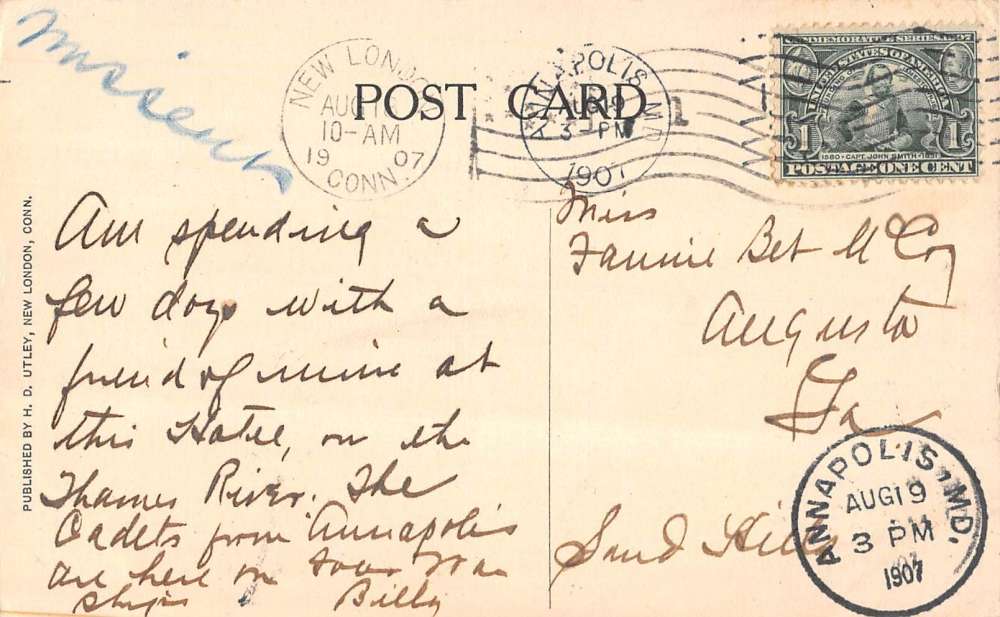 missent
NEW LONDON
AUG
10-AM
19 07
CONN.
POST CARD
ANNAPOLIS, MD
AUG 19
3-PM
1907
COMMEMORATIVE SERIES 1907
UNITED STATES OF AMERICA
1580 · CAPT. JOHN SMITH · 1631
1 1
POSTAGE ONE CENT
PUBLISHED BY H. D. UTLEY, NEW LONDON, CONN.
Am spending a
few days with a
friend of mine at
this Hotel, on the
Thames River. The
Cadets from Annapolis
are here on four War
Ships Billy
Miss
Fannie Bet McCoy
Augusta
Ga
Sand Hills
ANNAPOLIS, MD.
AUG 19
3 PM
1907